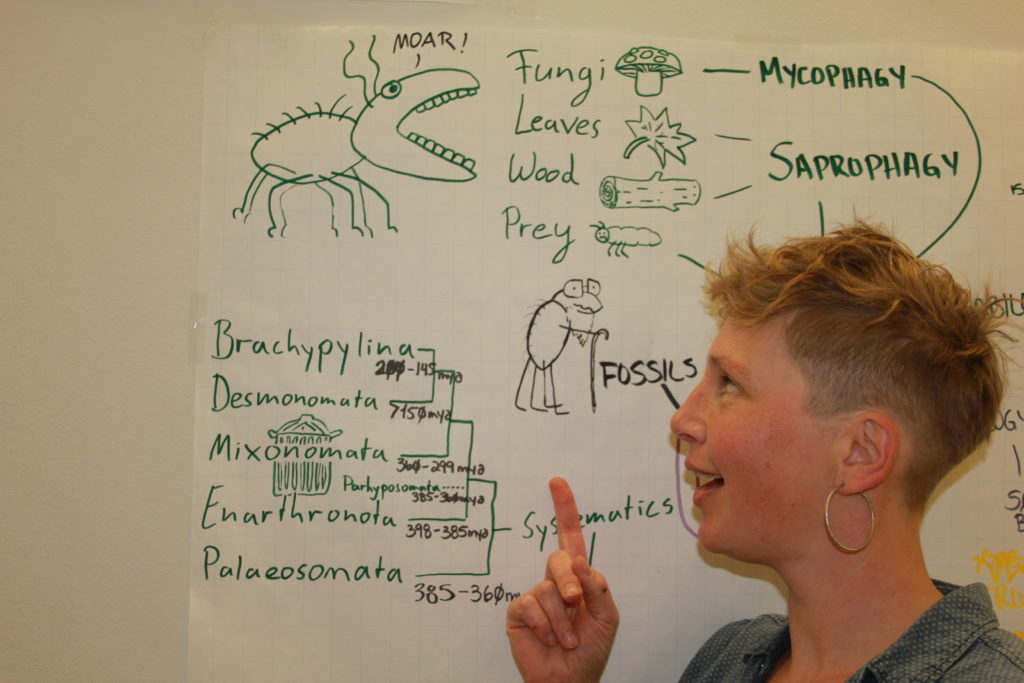 MOAR!
Fungi
MYCOPHAGY
Leaves
SAPROPHAGY
Wood
Prey
FOSSILS
Brachypylina
-145 mya
Desmonomata
Mixonomata
360-299 mya
Parhyposomata
385-360 mya
Enarthronota
398-385 mya
Systematics
Palaeosomata
385-360